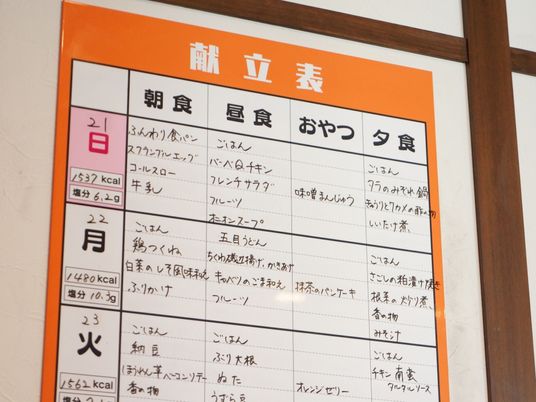 献立表
朝食 昼食 おやつ 夕食
21
日
1537 kcal
塩分 6.2g
ふんわり食パン
スクランブルエッグ
コールスロー
牛乳
ごはん
バーベQチキン
フレンチサラダ
フルーツ
オニオンスープ
味噌まんじゅう
ごはん
タラのみぞれ鍋
きゅうりとワカメの酢の物
しいたけ煮
22
月
1480 kcal
塩分 10.3g
ごはん
鶏つくね
白菜のしそ風味和え
ふりかけ
五目うどん
ちくわ磯辺揚げ、かきあげ
キャベツのごま和え
フルーツ
抹茶のパンケーキ
ごはん
さごしの粕漬け焼き
根菜の炒り煮
香の物
みそ汁
23
火
1562 kcal
塩分
ごはん
納豆
ほうれん草ベーコンソテー
香の物
ごはん
ぶり大根
ぬた
うずら豆
オレンジゼリー
ごはん
チキン南蛮
タルタルソース